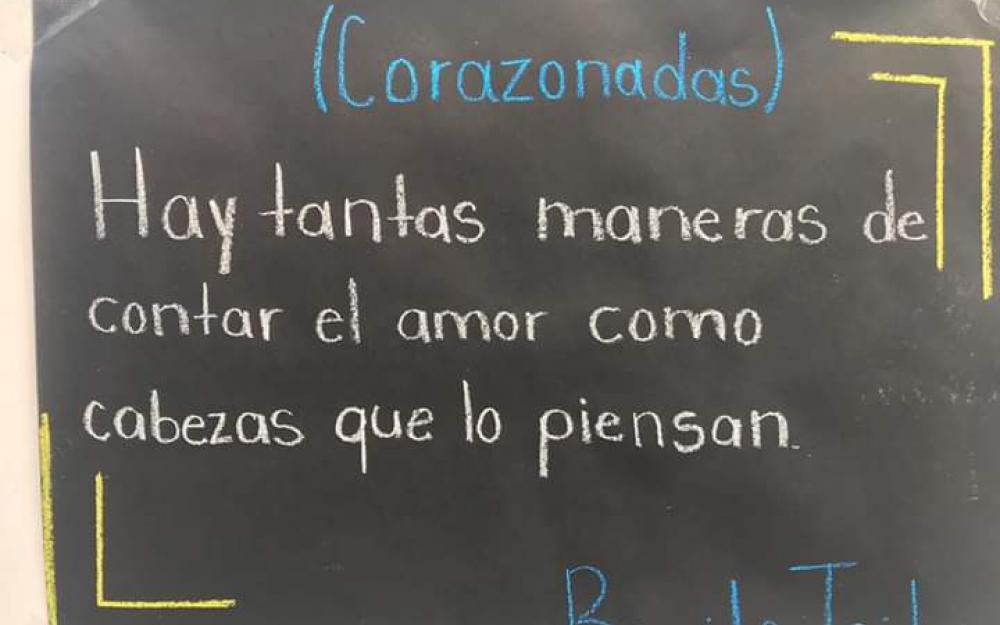 (Corazonadas)
Hay tantas maneras de
contar el amor como
cabezas que lo piensan.